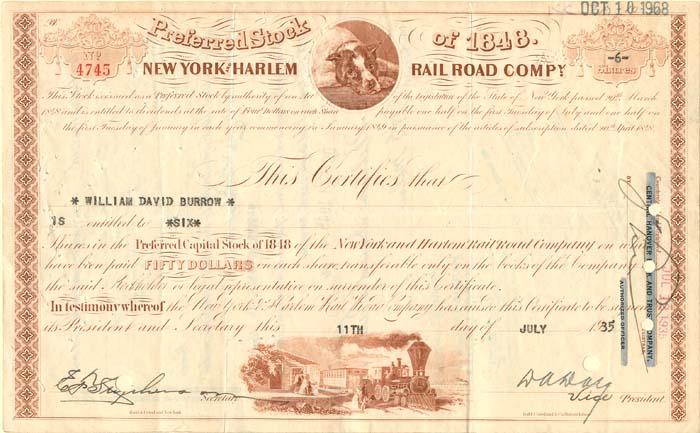 OCT 10 1968
Preferred Stock of 1848.
No
4745
NEW YORK AND HARLEM RAIL ROAD COMPY
-6-
Shares
This Stock is issued as a Preferred Stock by authority of an Act of the Legislature of the State of New York passed 29th March
1848 and is entitled to dividends at the rate of Four Dollars on each Share payable one half on the first Tuesday of July and one half on
the first Tuesday of January in each year commencing in January 1849 in pursuance of the articles of subscription dated 20th April 1848.
This Certifies that
* WILLIAM DAVID BURROW *
IS entitled to *SIX*
Shares in the Preferred Capital Stock of 1848 of the New York and Harlem Rail Road Company on which
have been paid FIFTY DOLLARS on each share transferable only on the books of the Company by
the said Stockholder or legal representative on surrender of this Certificate.
In testimony whereof the New York & Harlem Rail Road Company has caused this Certificate to be signed by
its President and Secretary this 11TH day of JULY 1935
CENTRAL HANOVER BANK AND TRUST COMPANY.
BY
AUTHORIZED OFFICER
JUL 1935
Secretary
Vice President